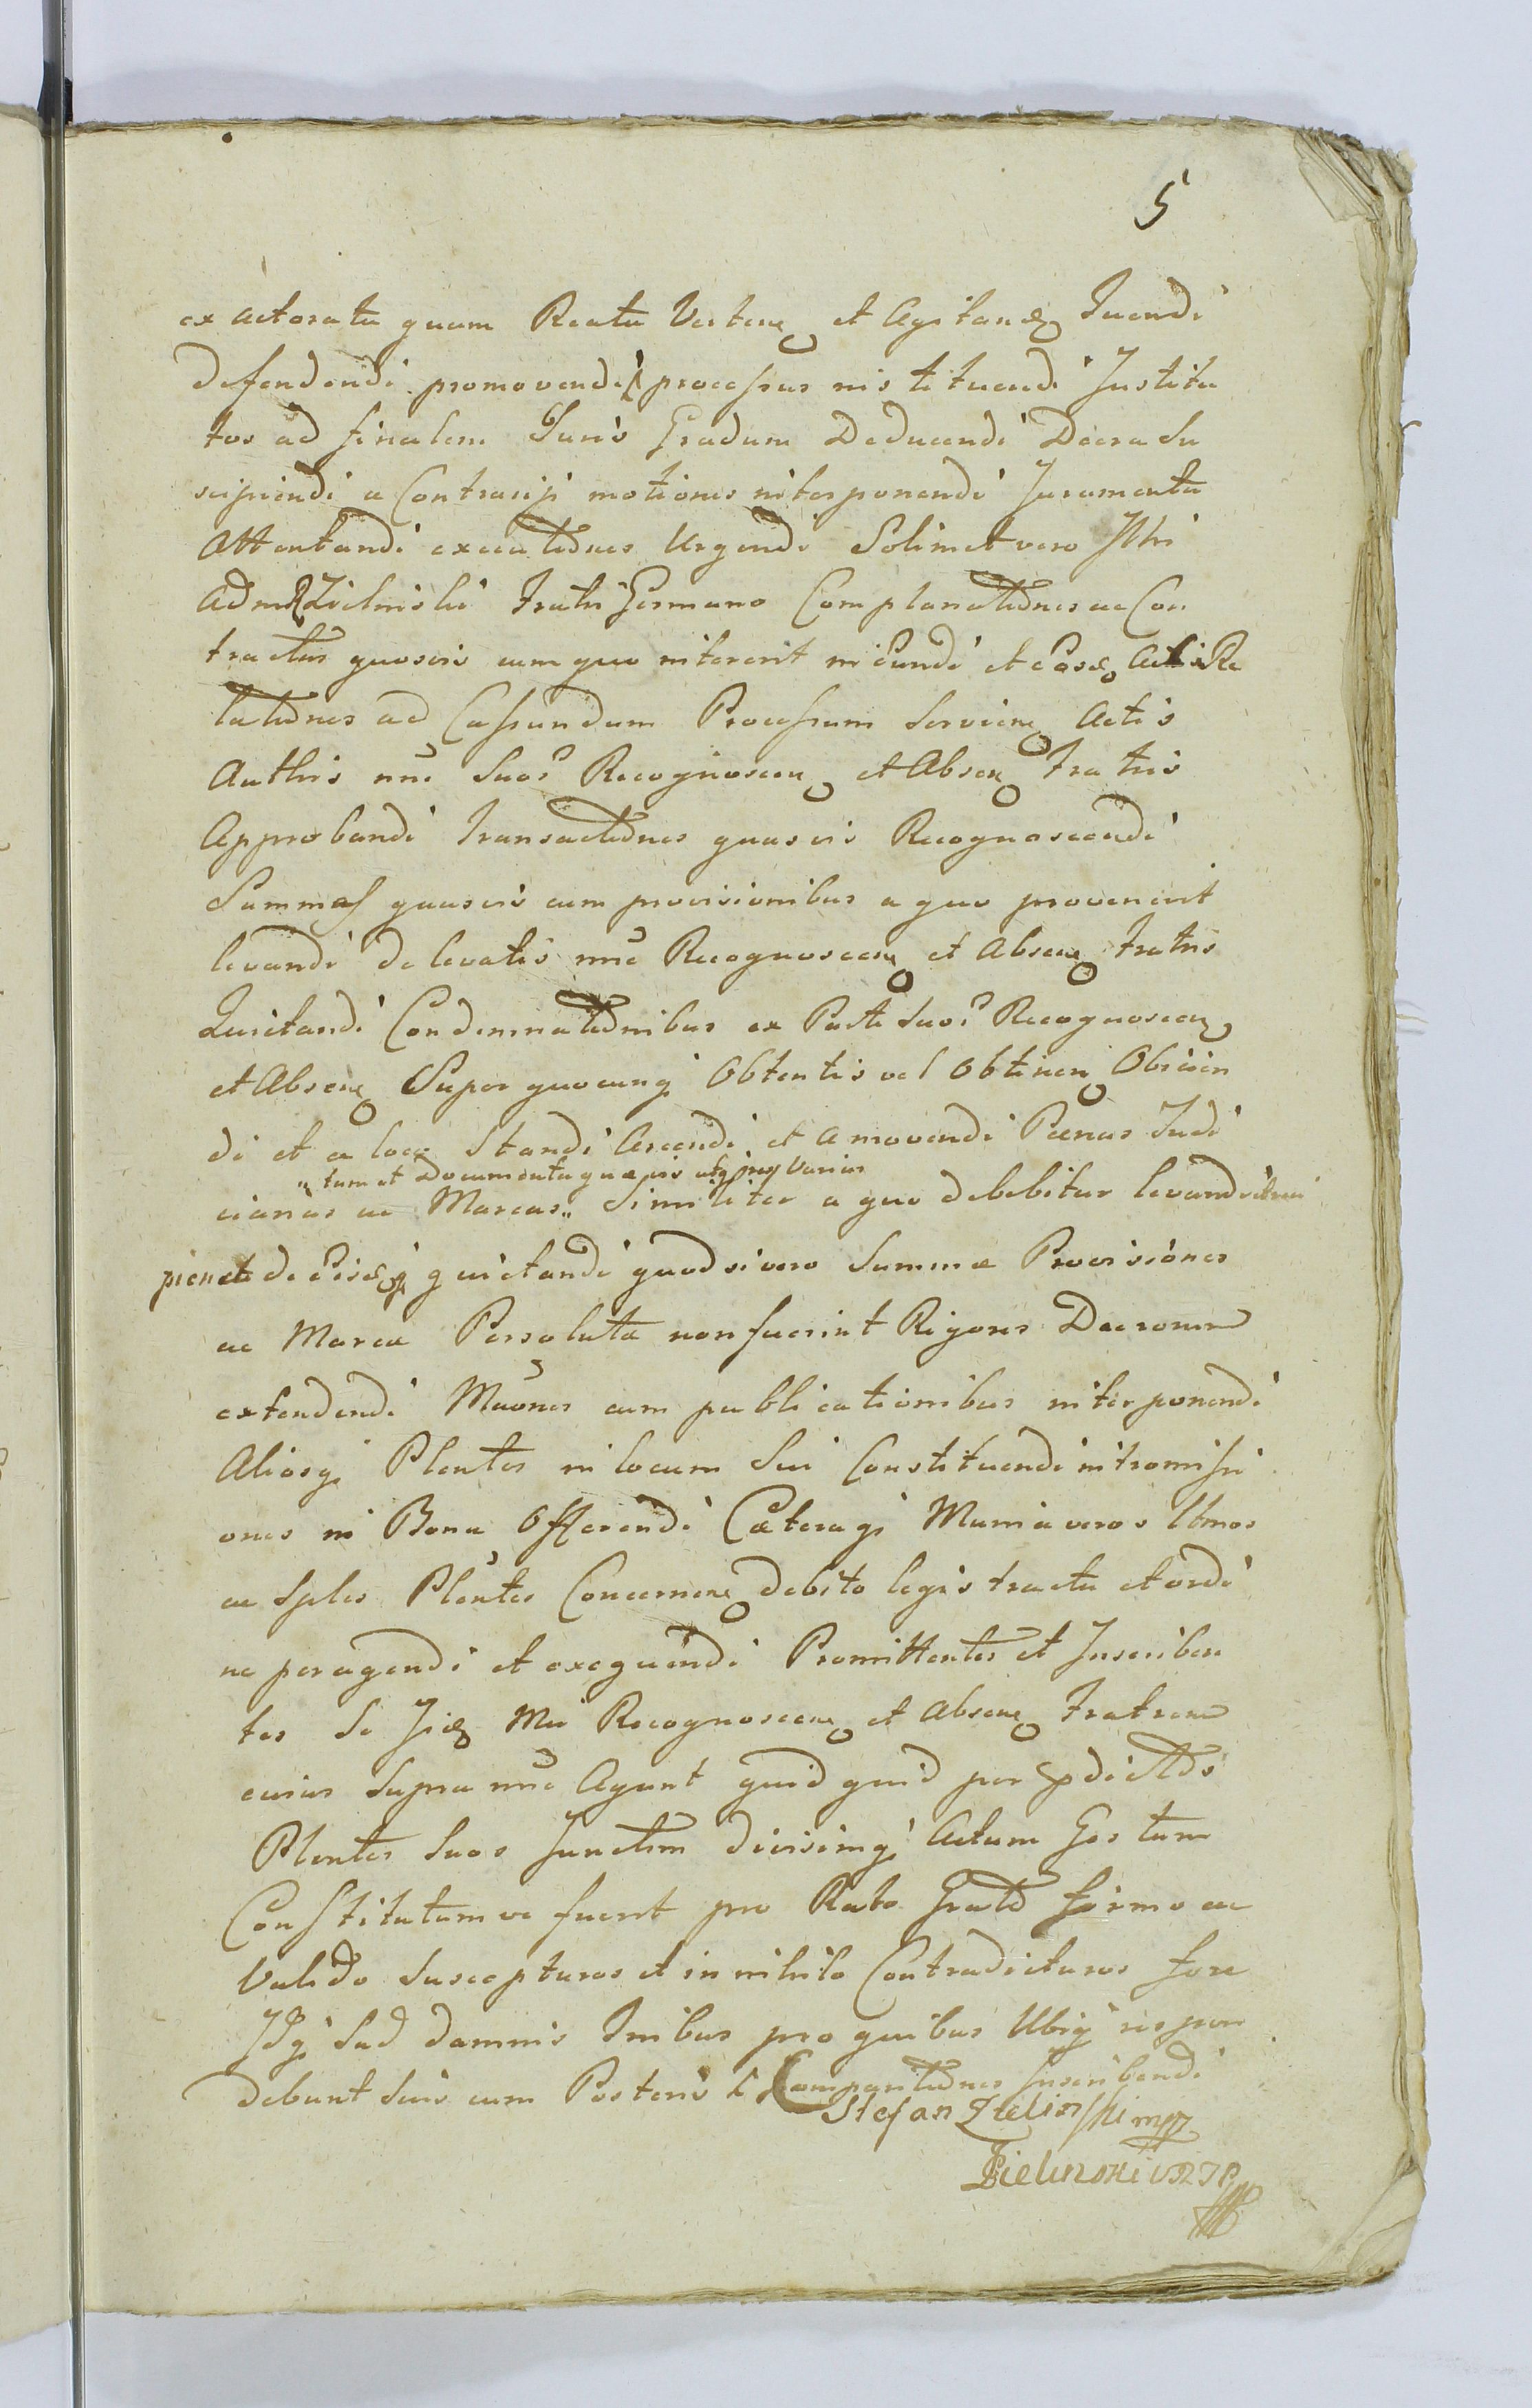 5
ex actoratu quam Reatu Verten et Agitan Tuendi
defendendi promovendi processus instituendi Institu
tos ad finalem Juris Gradum Deducendi Decra Su
scipiendi a Contrariis motiones interponendi Juramenta
Attentandi executiones Urgendi Solimet vero
Zielinski Fratri Germano Complanationes ac Con
tractus quosvis cum quo intererit ineundi et Re
lationes ad Cassandum Processum Servien Actis
Authis nune Suos Recognoscen et Absen Fratris
Approbandi Transactiones quasvis Recognoscendi
Summas quasvis cum provisionibus a quo provenerit
levandi de levatis nune Recognoscen et Absen Fratris
Quietandi Condemnationibus ex Parte Suos Recognoscen
et Absen Super quocunq Obtentis vel Obtinen Obviin
di et a loco Standi Arcendi et amovendi Pænas Judi
" tum et Documenta quævis
cianas ac Marcas " Similiter a quo debebitur levandi
quietandi quod si vero Summæ Provisiones
ac Marcæ Persolutæ non fuerint Rigores Decrorum
extendendi Muones cum publicationibus interponendi
Aliosq Plentes in locum Sui Constituendi intromissi
ones in Bona Offerendi Cæteraq Munia veros lltmos
ac sples Plentes Concernen debito legis tractu et ordi
ne peragendi et exequendi Promittentes et Inscriben
tes Se Recognoscen et Absen Fratrem
cuius supra nune Agunt quidquid per pdictos
Plentes Suos Junctim divisimq Actum Gestum
Constitutumve fuerit pro Rato Grato firmo ac
Valido Suscepturos et in nihilo Contradicturos fore
Idq Sub damnis Tribus pro quibus Ubiq respon
debunt Suis cum Posteris Comparitiones Inscribendi
Stefan Zielinski mp
Zielinski